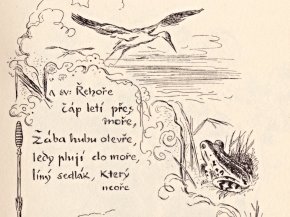 a sv: Řehoře
čáp letí přes
moře,
Žába hubu otevře,
ledy plují do moře,
líný sedlák, Který
neoře